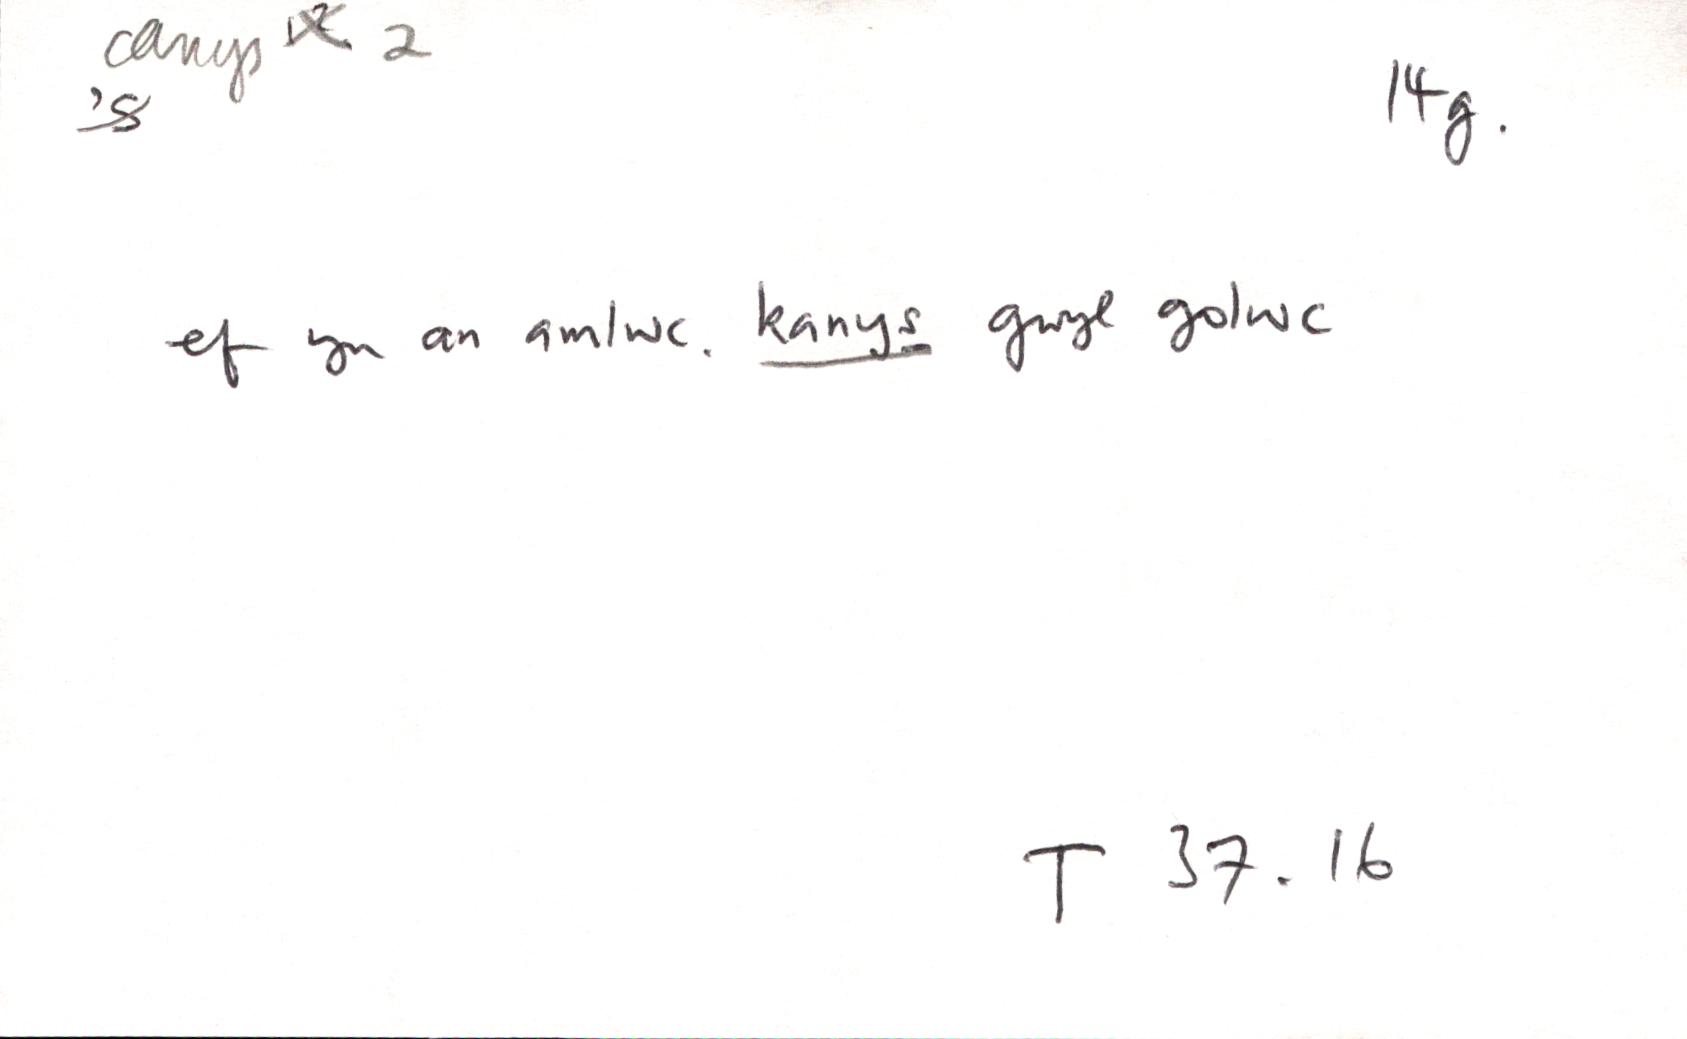 canys 2
's
14g.
ef yn an amlwc. kanys gwyl golwc
T 37.16